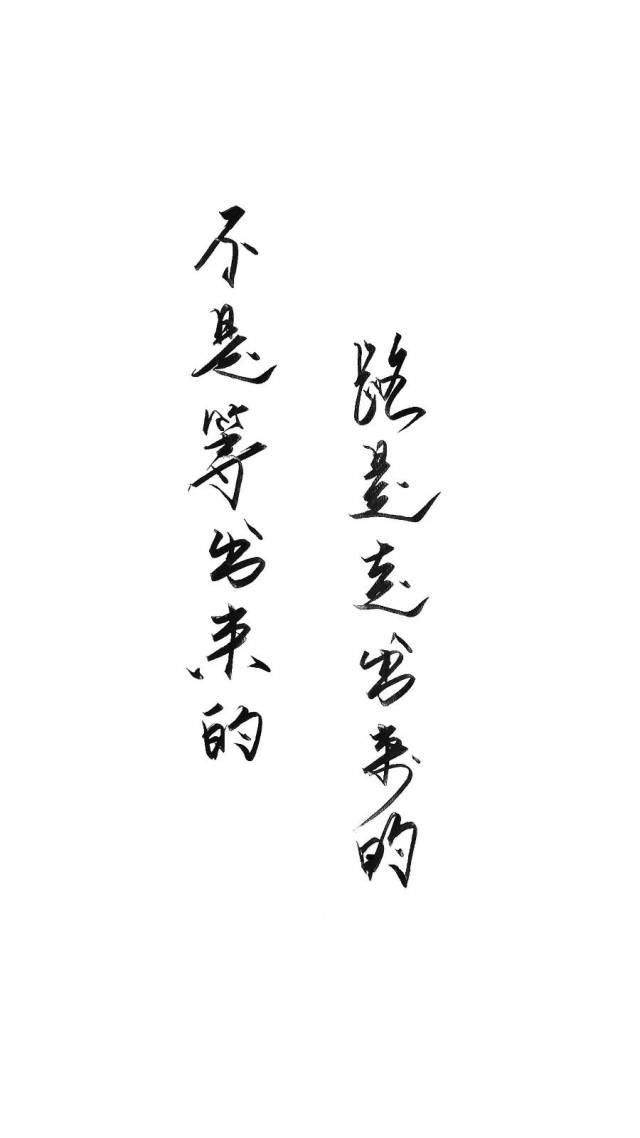 路是走出来的
不是等出来的